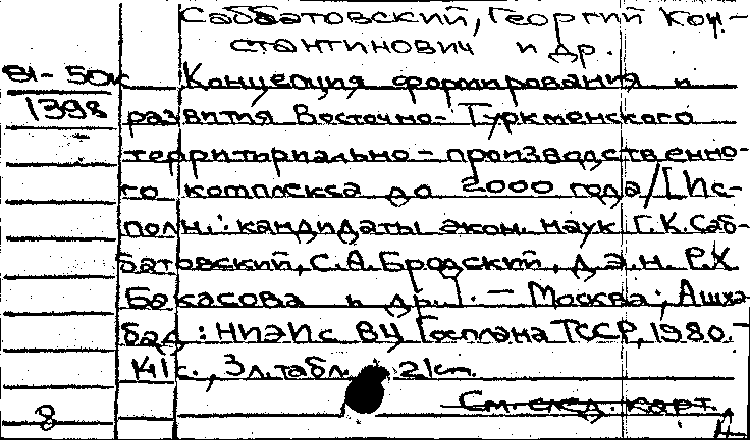 Саббатовский, Георгий Кон-
стантинович и др.
81-50к Концепция формирования и
1398 развития Восточно-Туркменского
территориально-производственно-
го комплекса до 2000 года/[Ис-
полн.: кандидаты экон. наук Г.К.Саб-
батовский, С.А.Бродский, д.э.н. Р.Х
Бакасова и др.]. — Москва; Ашха-
бад: НИЭИ с ВЦ Госплана ТССР, 1980.-
л. табл. 21 см.
См. след. карт.
8